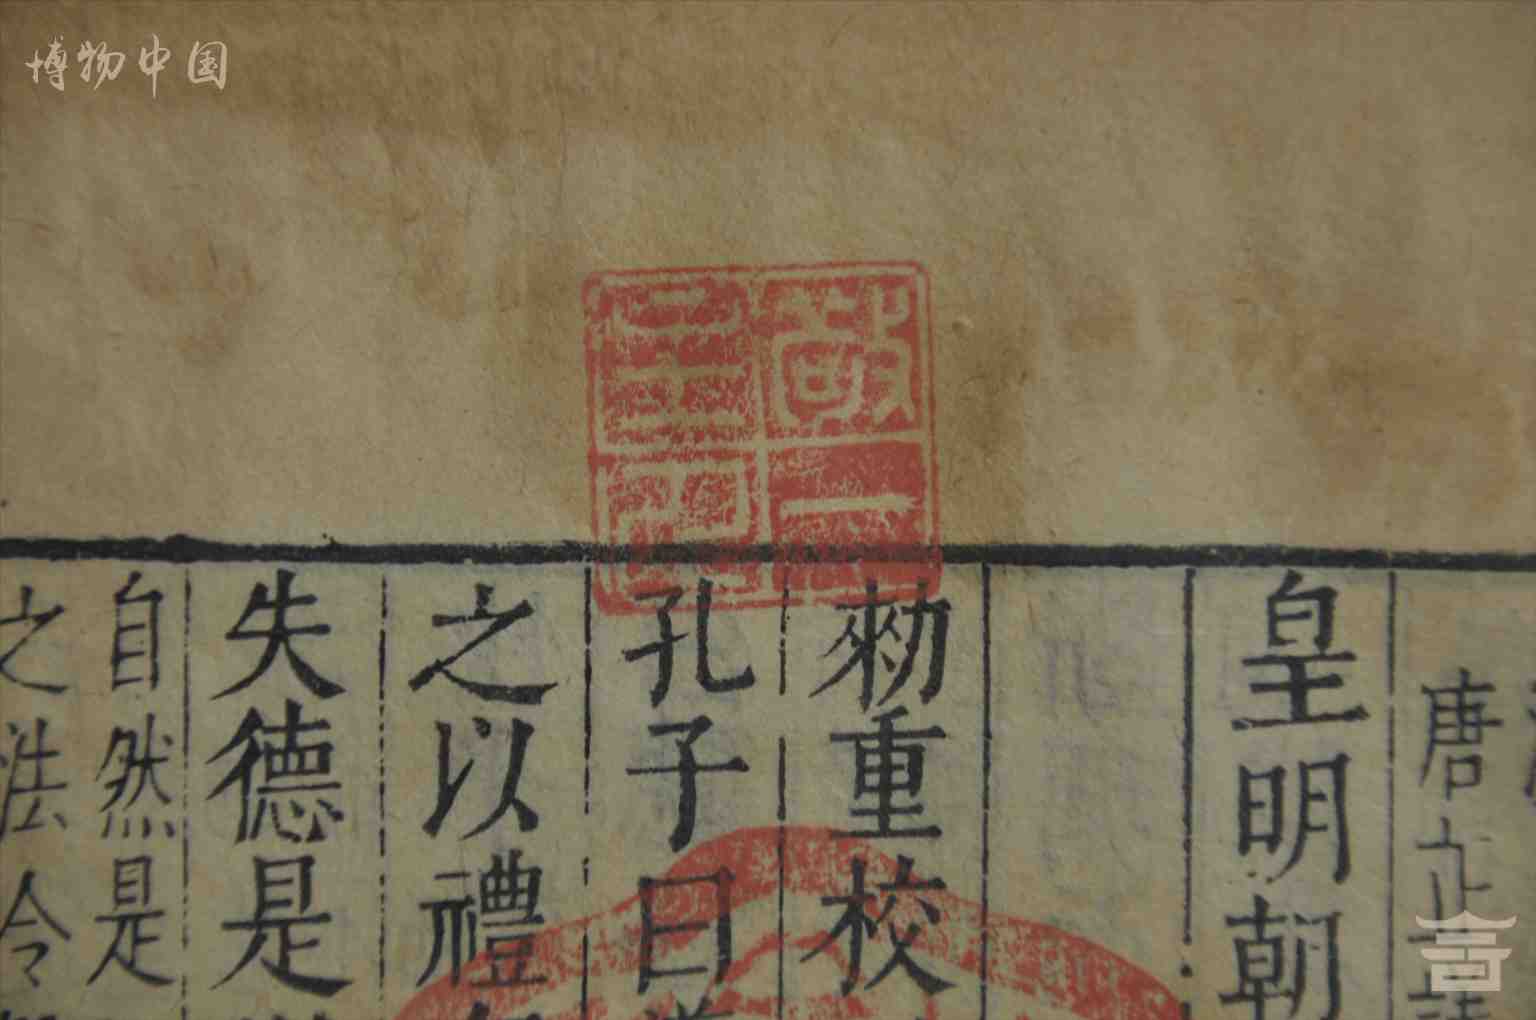 博物中国
敬一
主司
唐
皇明朝
勑重校
孔子曰
之以禮
失德是
自然是
之法令